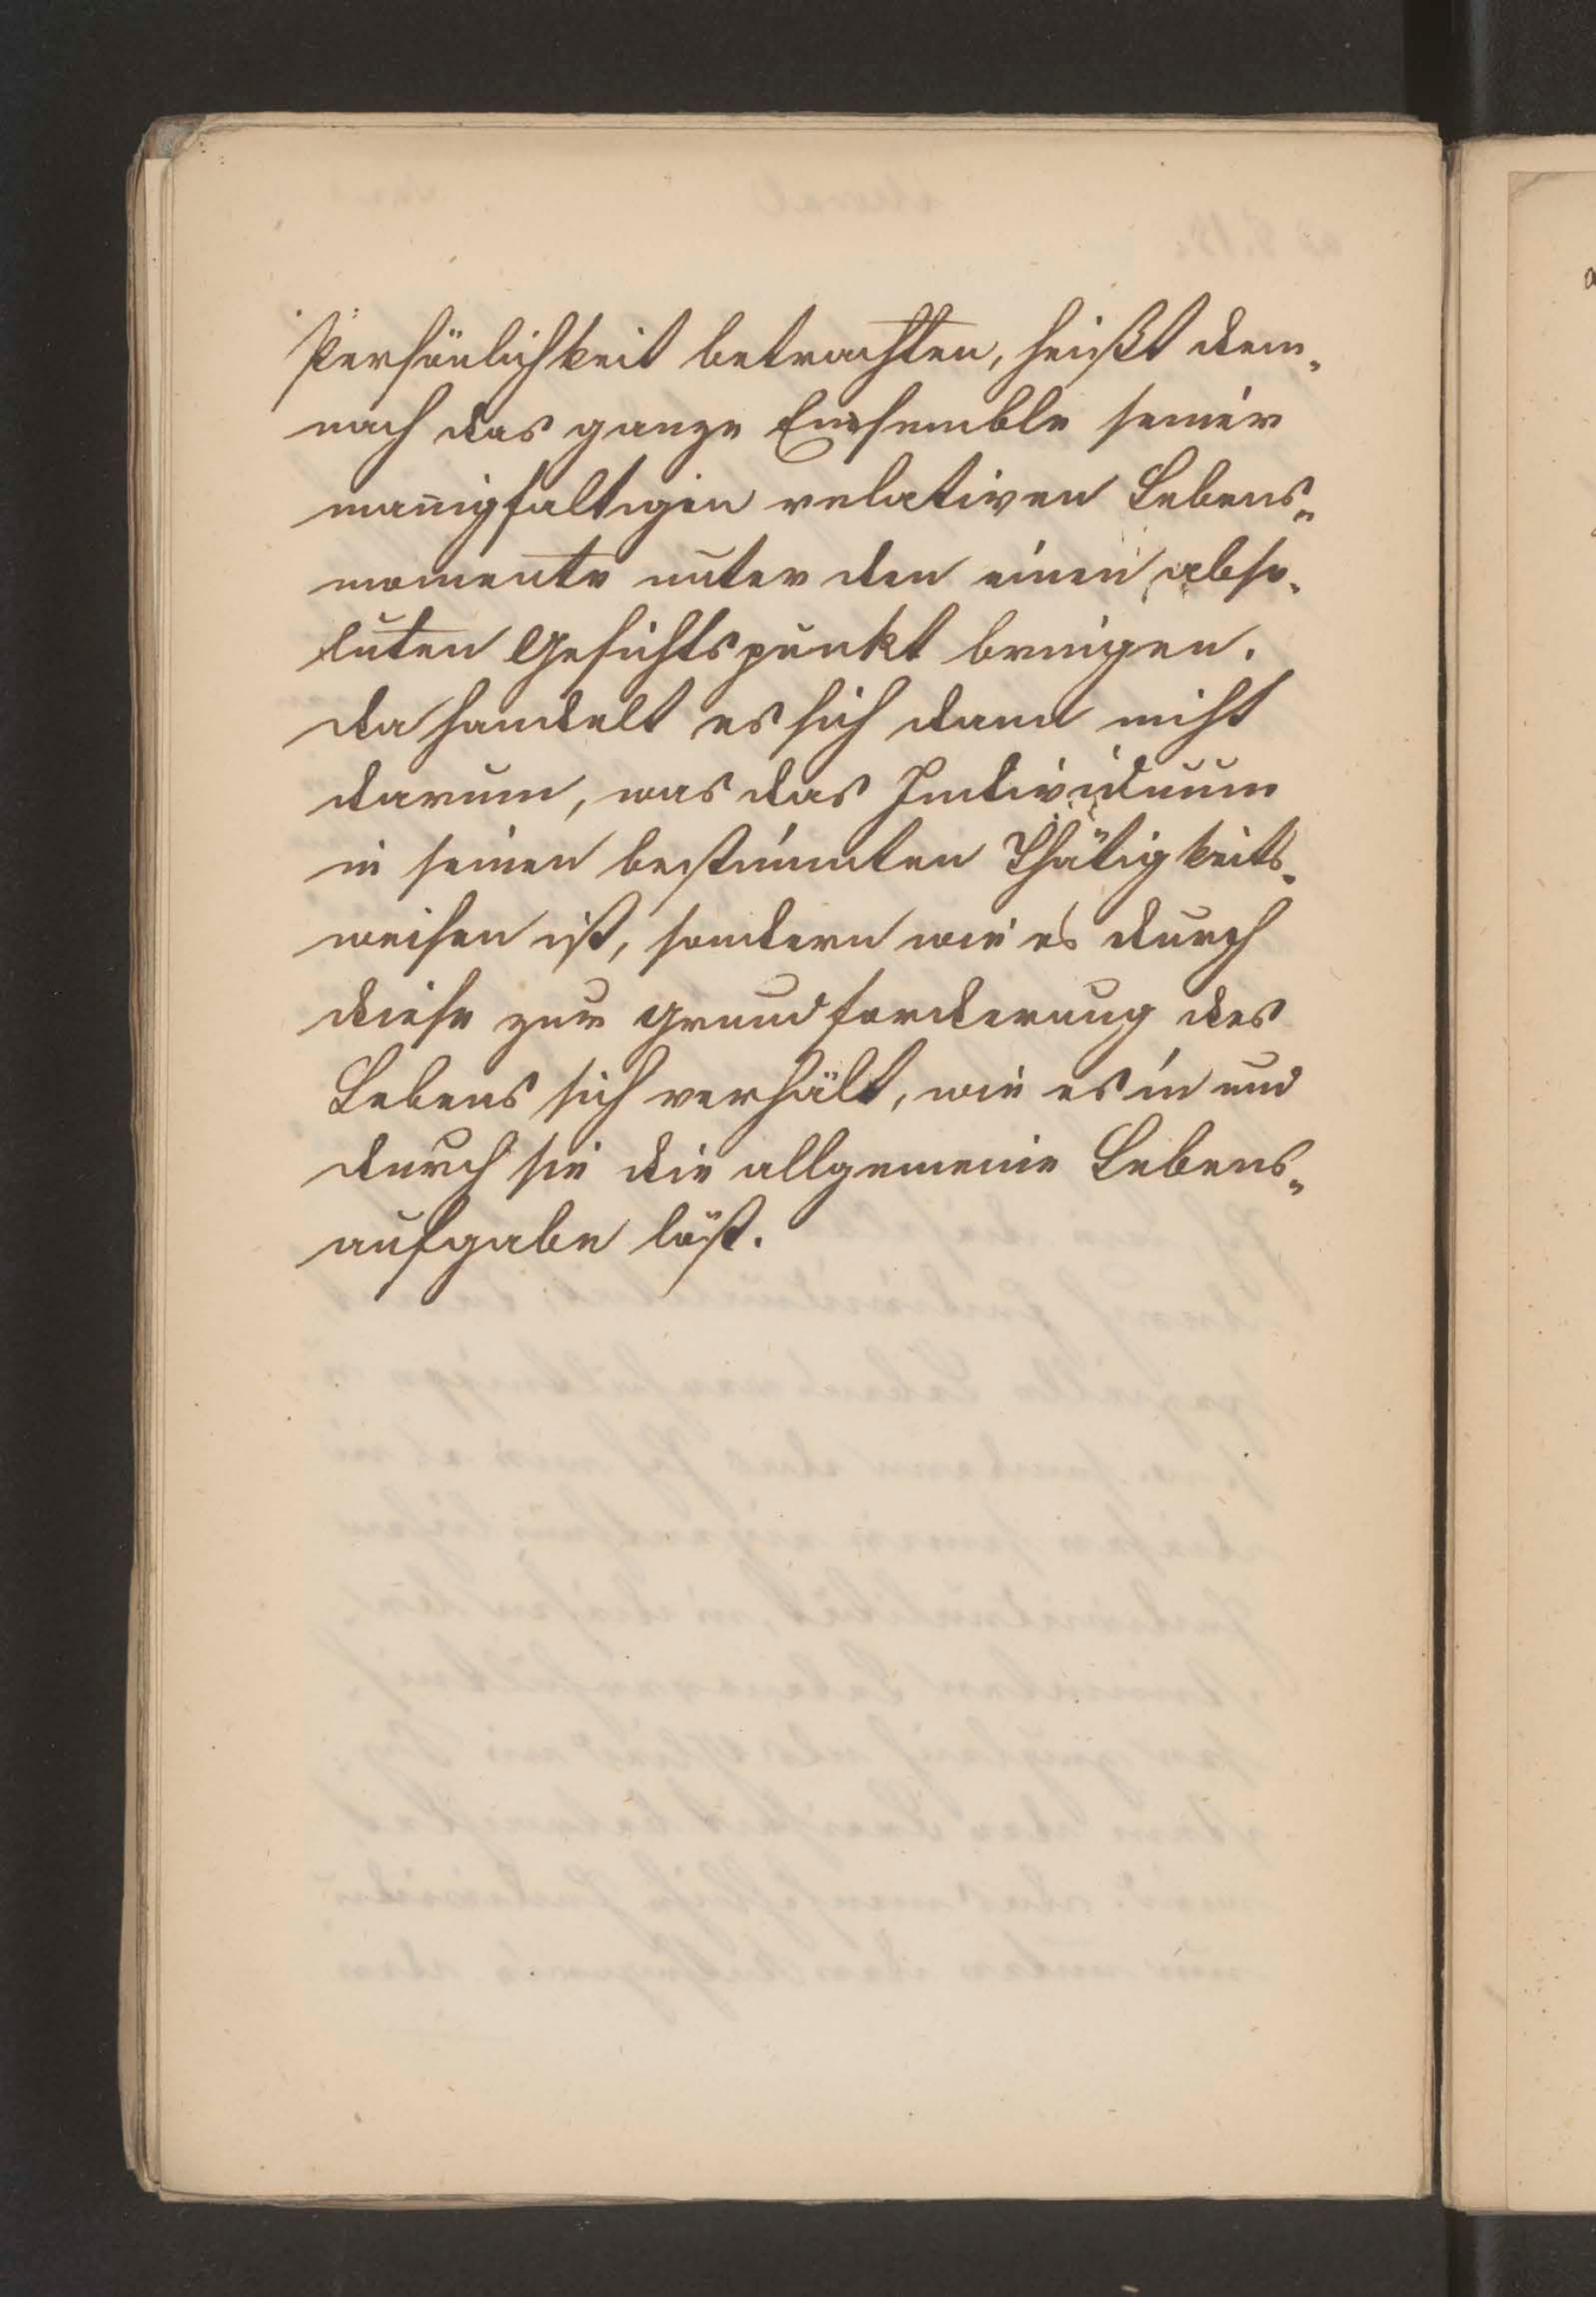 Persönlichkeit betrachten, heißt dem-
nach das ganze Ensemble seiner
mañigfaltigen relativen Lebens-
momente unter den einen abso-
luten Gesichtspunkt bringen.
Da handelt es sich dann nicht
darum, was das Individuum
in seinen bestimmten Thätigkeits-
weisen ist, sondern wie es durch
diese zur Grundforderung des
Lebens sich verhält, wie es in und
durch sie die allgemeine Lebens-
aufgabe löst.